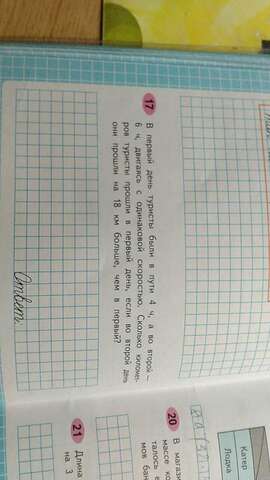 17 В первый день туристы были в пути 4 ч, а во второй —
6 ч, двигаясь с одинаковой скоростью. Сколько километ-
ров туристы прошли в первый день, если во второй день
они прошли на 18 км больше, чем в первый?
Ответ:
Катер
Лодка
20 В магази
массе ко
талось в
мов бан
21 Длина
на 3